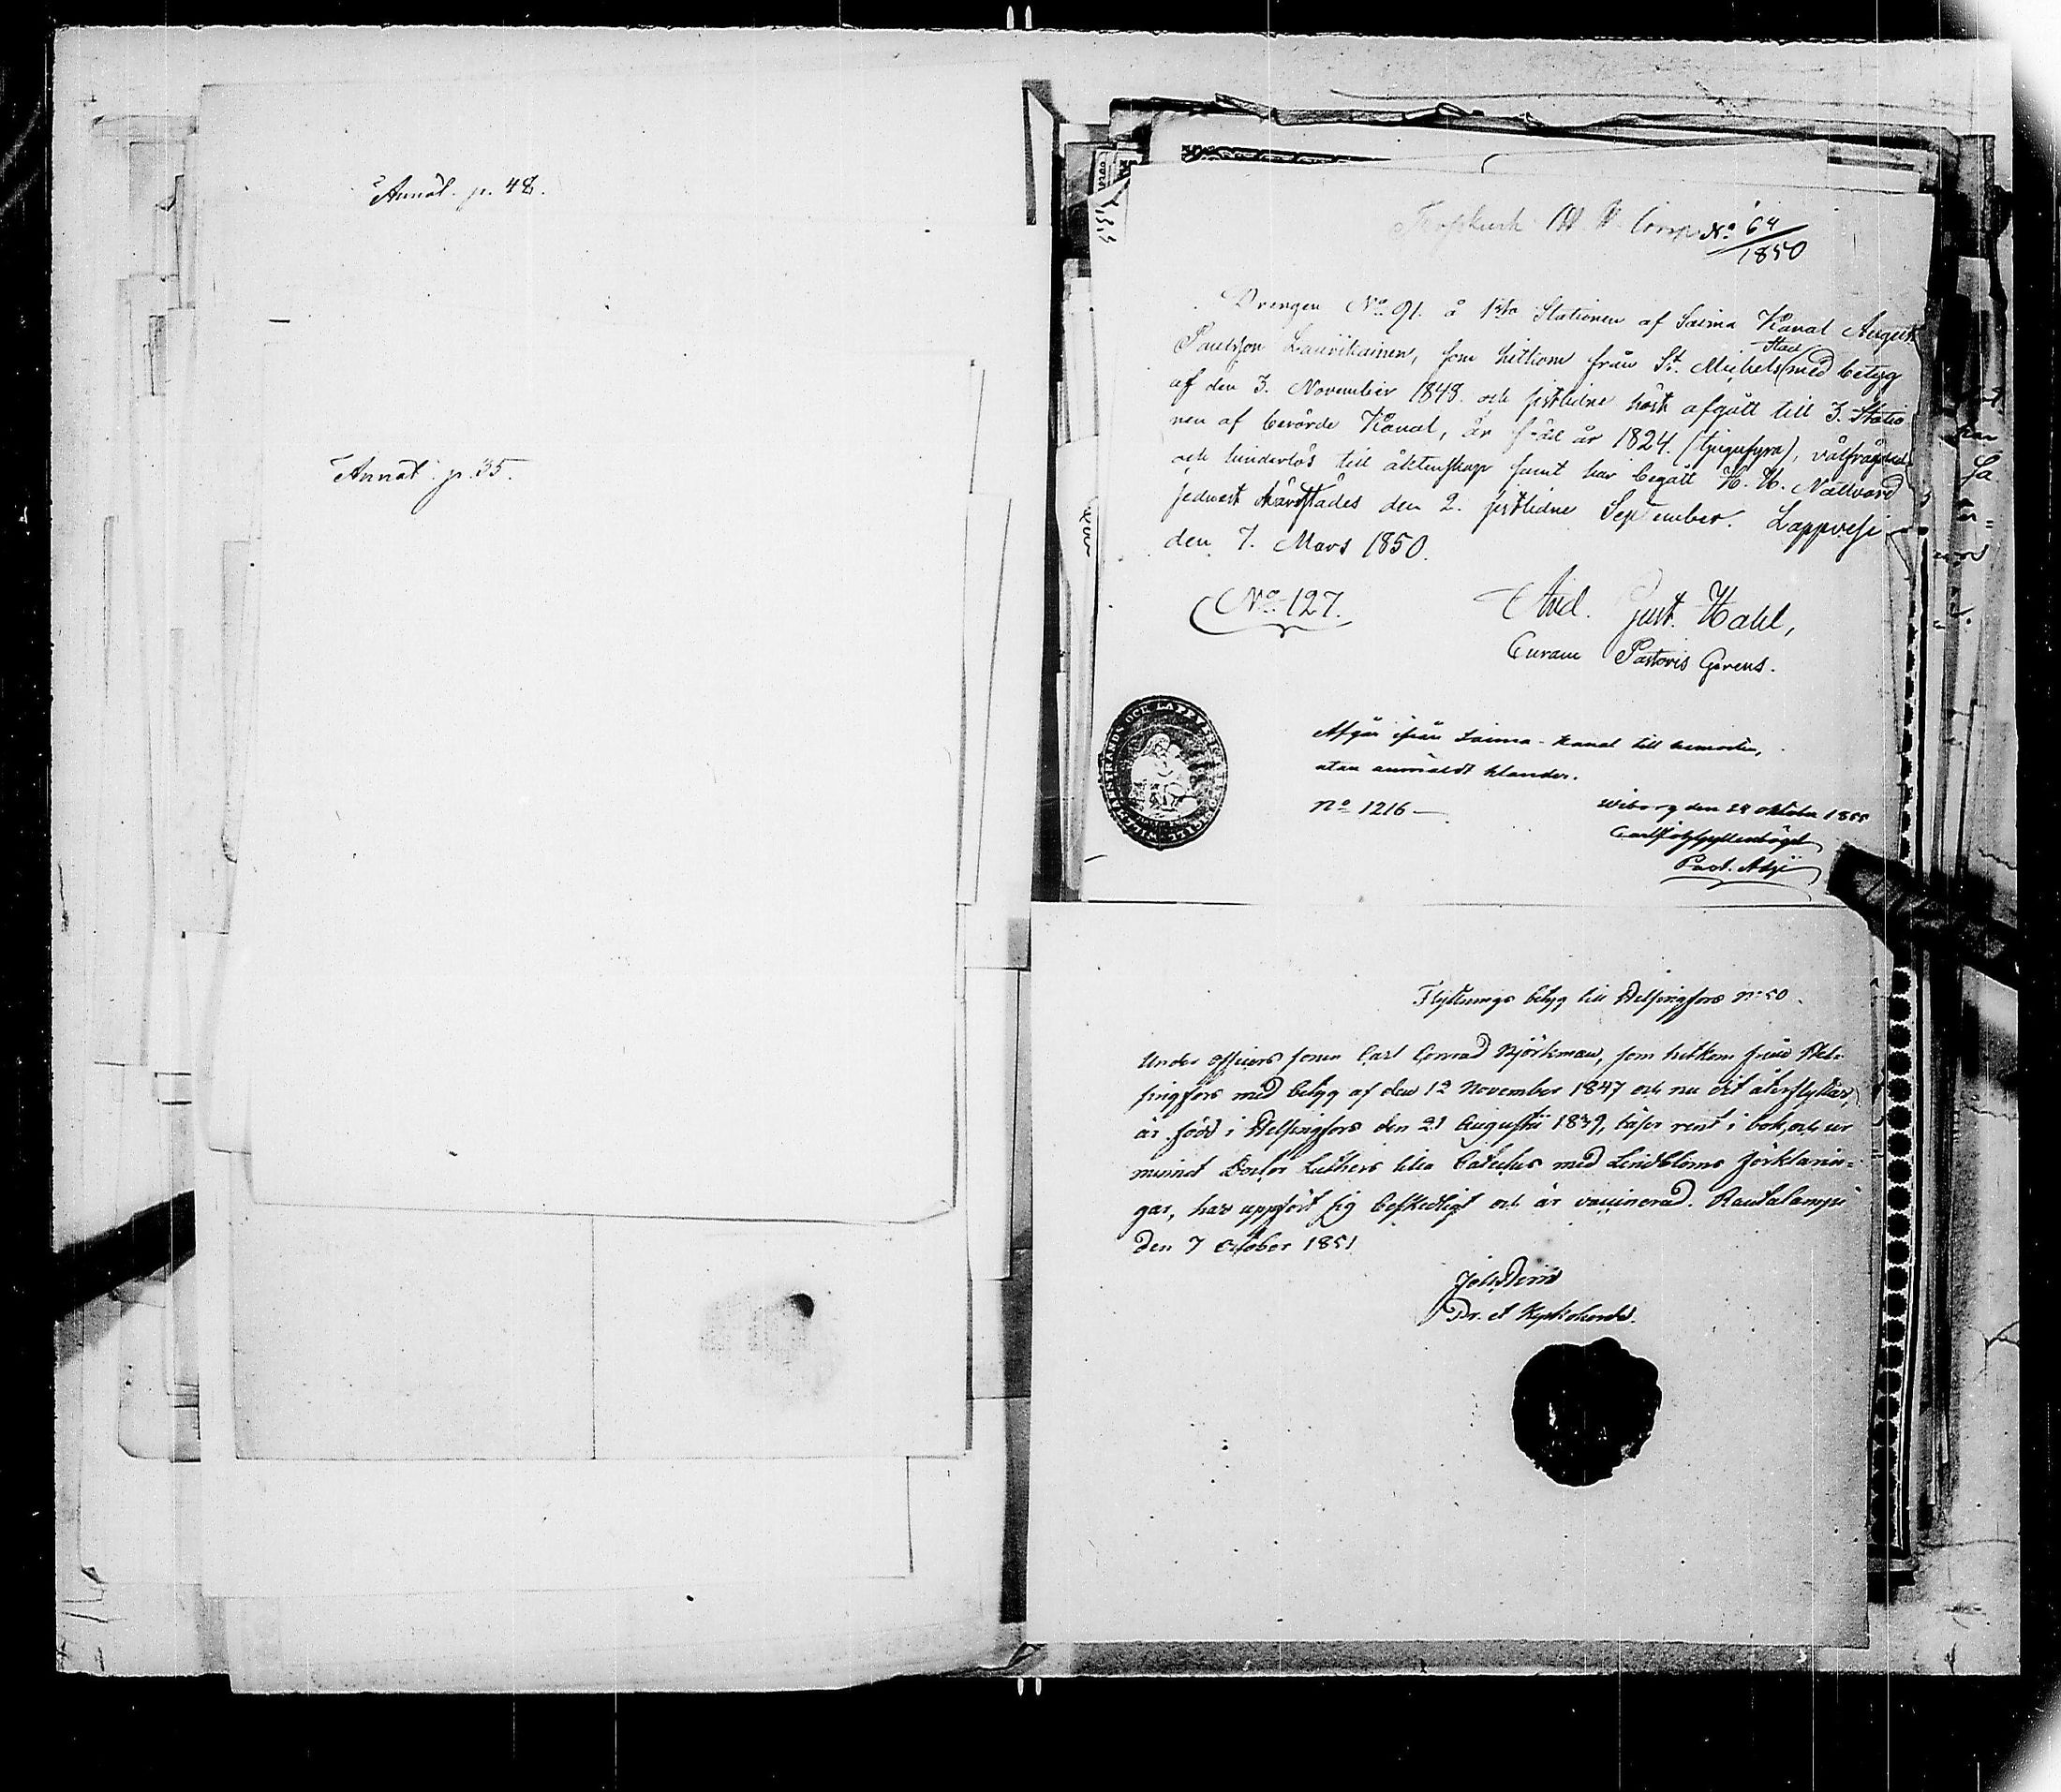 Annot. p. 48.
Annot. p. 35.
No 64
1850
Drengen No 91. å 1sta Stationen af Saima Kanal August
Paulsson Laurikainen, som hitkom från St. Michels Stad med betyg
af den 3. November 1848. och sistlidne höst afgått till 3. Statio
nen af berörde Kanal, är född år 1824. (tjugufyra), välfrägdad
och hinderlös till äktenskap samt har begått H. H. Nattvard
sednast härstädes den 2. sistlidne September. Lappvesi
den 7. Mars 1850.
No 127.
And. Gust. Hahl,
Curam Pastoris Gerens.
OCH LAPPVESI
Afgår ifrån Saima-Kanal till hemorten,
utan anmäldt klander.
No 1216 —
Wiborg den 28 oktober 1850
Past. Adj.
Flyttnings betyg till Helsingfors No 50.
Under officers sonen Carl Conrad Björkman, som hitkom från Hel-
singfors med betyg af den 12 November 1847 och nu dit återflyttar,
är född i Helsingfors den 21 Augustii 1839, läser rent i bok, och ur
minnet Doctor Luthers lilla Cateches med Lindbloms förklarin-
gar, har uppfört sig beskedligt och är vaccinerad. Rautalampi
den 7 October 1851
Pr. et Kyrkoherde.